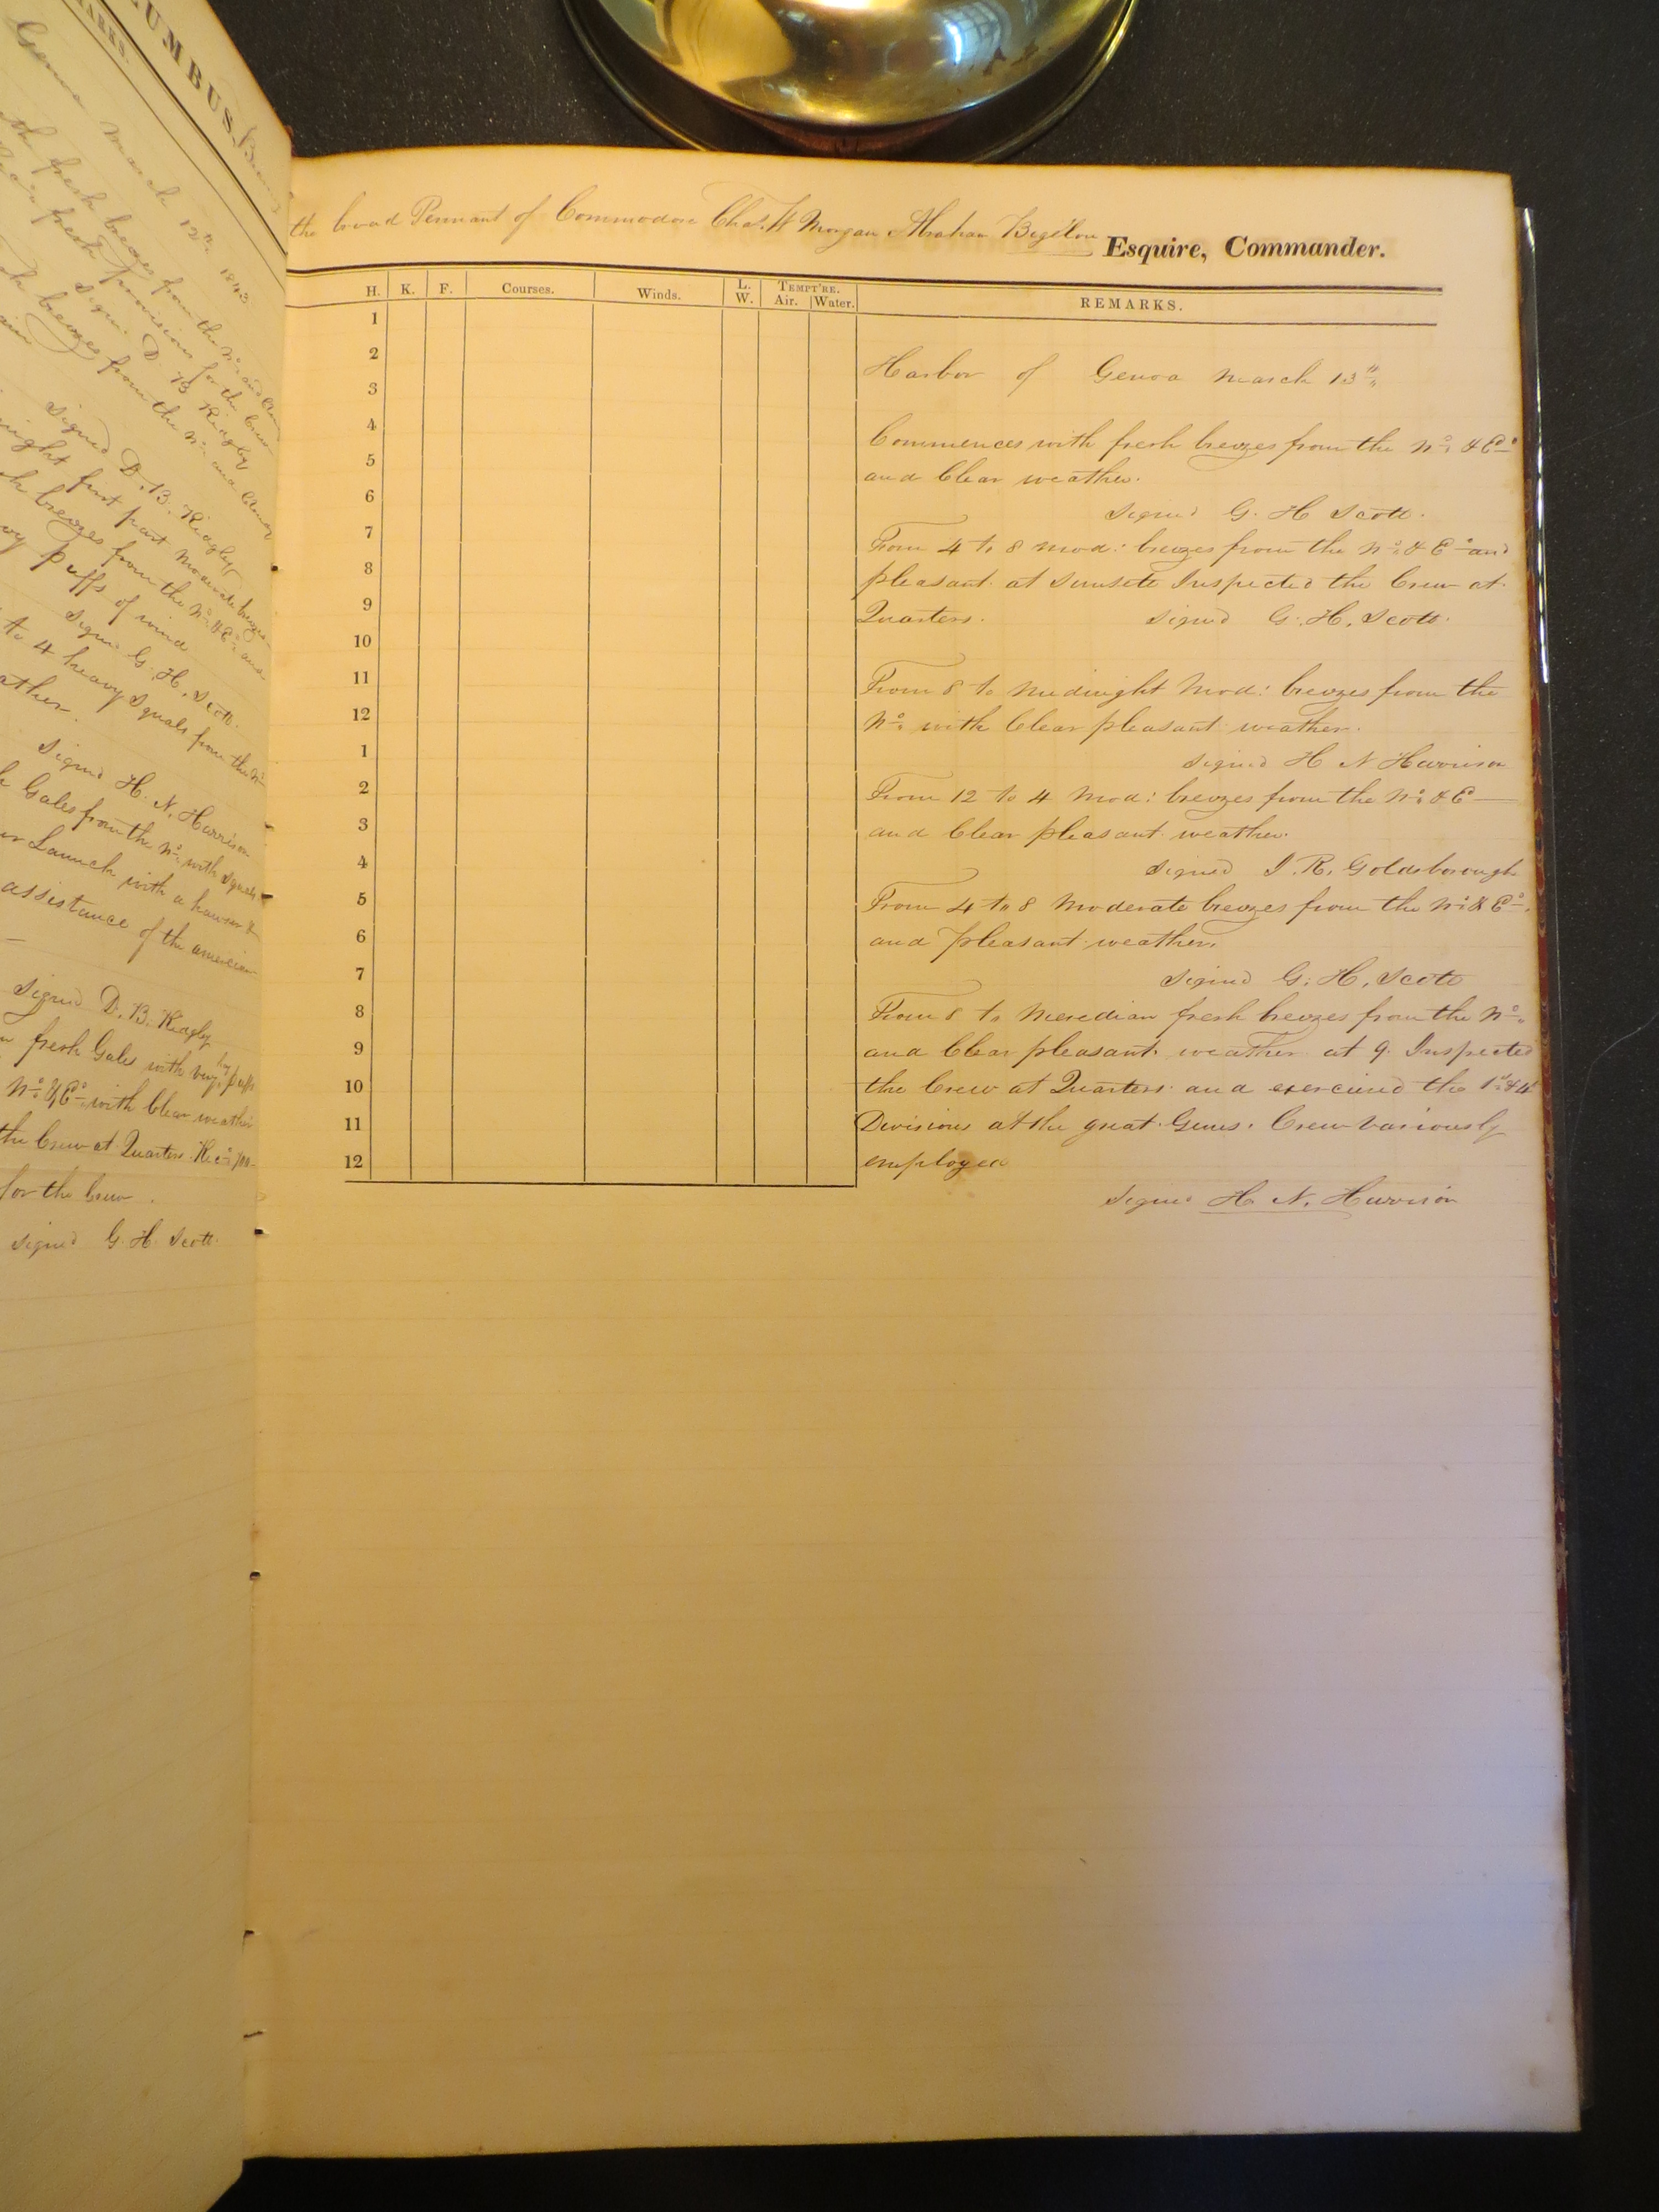 UMBUS,
ARKS.
Genoa March 12th 1843
fresh breezes from the No. and
fresh provisions for the Crew
Signd D. B. Ridgley
breezes from the No. and
Signd D. B. Ridgley
night first part Moderate breezes
breezes from the No. & Ed. and
puffs of wind
Signd G. H. Scott.
to 4 heavy Squals from the No.
ather.
Signd H. N. Harrison
Gales from the No. with squals
Launch with a hawser &
assistance of the american
Signd D. B. Ridgley
fresh Gales with very hvy puffs
No. & Ed. with Clear weather
the Crew at Quarters. Recd 700
for the Crew.
Signd G. H. Scott.
the broad Pennant of Commodore Chas. W Morgan Abraham Bigelow Esquire, Commander.
H. K. F. Courses. Winds. L. W. TEMPT'RE. Air. Water. REMARKS.
1
2
3
4
5
6
7
8
9
10
11
12
1
2
3
4
5
6
7
8
9
10
11
12
Harbor of Genoa March 13th
Commences with fresh breezes from the No. & Ed.
and Clear weather.
Signd G. H Scott.
From 4 to 8 mod: breezes from the No. & Ed. and
pleasant. at Sunsete Inspected the Crew at
Quarters. Signd G. H. Scott.
From 8 to Medinght Mod: breezes from the
No. with Clear pleasant weather.
Signd H N Harrison
From 12 to 4 Mod: breezes from the No. & E
and Clear pleasant weather.
Signed J. R. Goldsborough
From 4 to 8 Moderate breezes from the No. & Ed.
and pleasant weather.
Signd G. H. Scott
From 8 to Meredian fresh breezes from the No.
and Clear pleasant weather at 9. Inspected
the Crew at Quarters and exercised the 1st & 4th
Divisions at the great Guns. Crew variously
employed
Signd H. N. Harrison